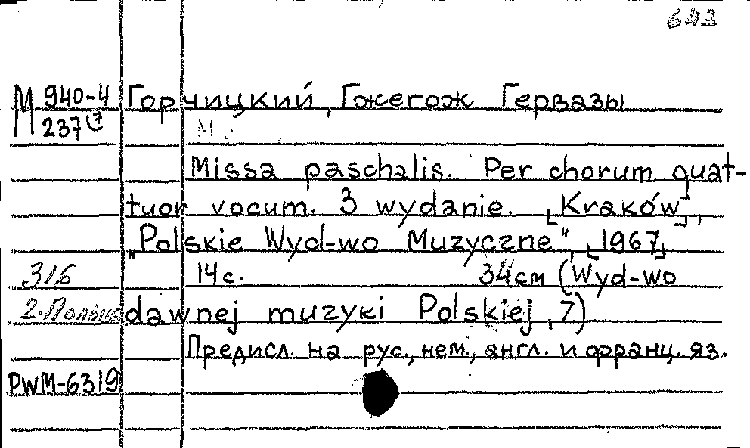 М 940-4 Горчицкий, Гжегож Гервазы
237
Missa paschalis. Per chorum quat-
tuor vocum. 3 wydanie. [Kraków],
"Polskie Wyd-wo Muzyczne", [1967]
3/6 14 с. 34 см (Wyd-wo
2. Польша dawnej muzyki Polskiej, 7)
Предисл. на рус., нем., англ. и франц. яз.
PWM-6319